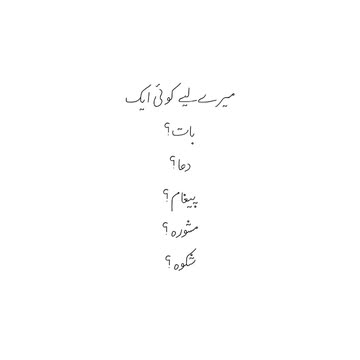 میرے لیے کوئی ایک
بات؟
دعا؟
پیغام؟
مشورہ؟
شکوہ؟